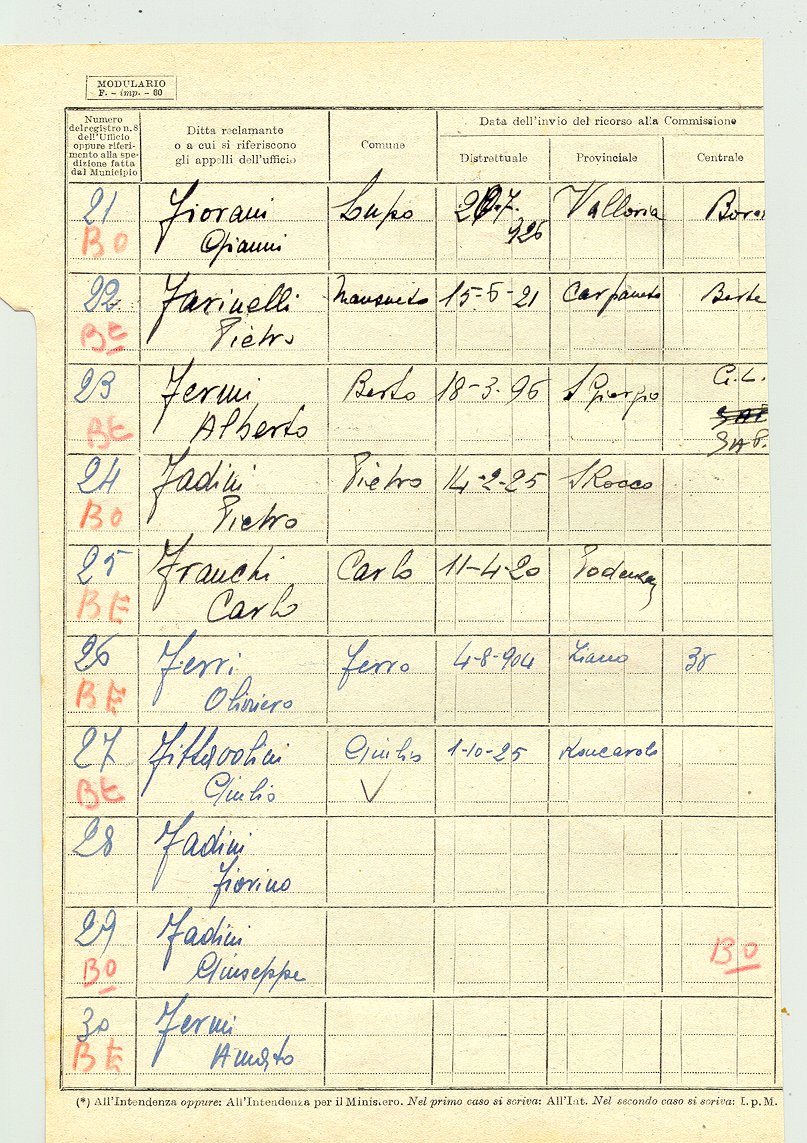 MODULARIO
F. - imp. - 60
Numero del registro n. 8 dell'Ufficio oppure riferimento alla spedizione fatta dal Municipio
Ditta reclamante o a cui si riferiscono gli appelli dell'ufficio
Comune
Data dell'invio del ricorso alla Commissione
Distrettuale
Provinciale
Centrale
21 Fiorani Lupo 20.7. Valloria
BO Gianni 926
22 Farinelli Mansueto 15-5-21 Carpaneto Berte
BE Pietro
23 Fermi Berto 18-3-96 S Giorgio G.L.
BE Alberto SAP.
24 Fadini Pietro 14-2-25 S Rocco
BO Pietro
25 Franchi Carlo 11-4-20 Podenzan
BE Carlo
26 Ferri Ferro 4-8-904 Ziano 38
BE Oliviero
27 Fittavolini Giulio 1-10-25 Roncarolo
BE Giulio ✓
28 Fadini
Fiorino
29 Fadini
BO Giuseppe BO
30 Fermi
BE Amato
(*) All'Intendenza oppure: All'Intendenza per il Ministero. Nel primo caso si scriva: All'Int. Nel secondo caso si scriva: I. p. M.